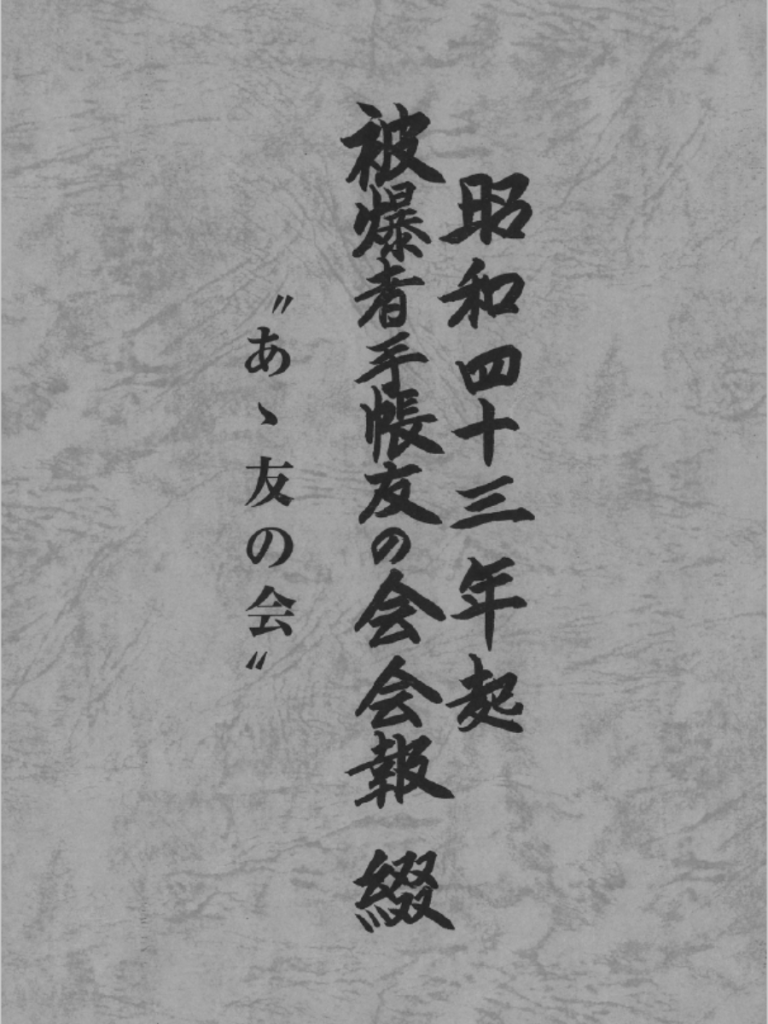 昭和四十三年起
被爆者手帳友の会会報 綴
〃あゝ友の会〃